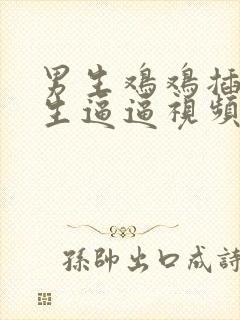 男生鸡鸡插
生逼逼視頻
孫帥出口成詩